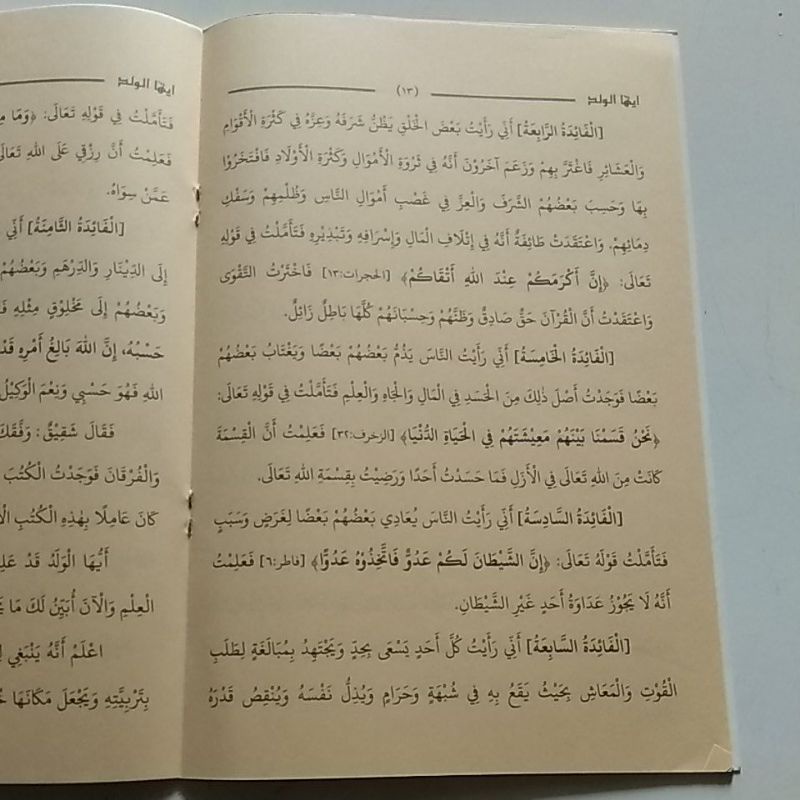 ايها الولد
(١٣)
[الْفَائِدَةُ الرَّابِعَةُ] أَنِّي رَأَيْتُ بَعْضَ الْخَلْقِ يَظُنُّ شَرَفَهُ وَعِزَّهُ فِي كَثْرَةِ الْأَقْوَامِ
وَالْعَشَائِرِ فَاغْتَرَّ بِهِمْ وَزَعَمَ آخَرُونَ أَنَّهُ فِي ثَرْوَةِ الْأَمْوَالِ وَكَثْرَةِ الْأَوْلَادِ فَافْتَخَرُوْا
بِهَا وَحَسِبَ بَعْضُهُمْ الشَّرَفَ وَالْعِزَّ فِي غَصْبِ أَمْوَالِ النَّاسِ وَظُلْمِهِمْ وَسَفْكِ
دِمَائِهِمْ. وَاعْتَقَدَتْ طَائِفَةٌ أَنَّهُ فِي إِتْلَافِ الْمَالِ وَإِسْرَافِهِ وَتَبْذِيْرِهِ فَتَأَمَّلْتُ فِي قَوْلِهِ
تَعَالَى: ﴿إِنَّ أَكْرَمَكُمْ عِنْدَ اللهِ أَتْقَاكُمْ﴾ [الحجرات:١٣] فَاخْتَرْتُ التَّقْوَى
وَاعْتَقَدْتُ أَنَّ الْقُرْآنَ حَقٌّ صَادِقٌ وَظَنَّهُمْ وَحِسْبَانَهُمْ كُلَّهَا بَاطِلٌ زَائِلٌ.
[الْفَائِدَةُ الْخَامِسَةُ] أَنِّي رَأَيْتُ النَّاسَ يَذُمُّ بَعْضُهُمْ بَعْضًا وَيَغْتَابُ بَعْضُهُمْ
بَعْضًا فَوَجَدْتُ أَصْلَ ذٰلِكَ مِنَ الْحَسَدِ فِي الْمَالِ وَالْجَاهِ وَالْعِلْمِ فَتَأَمَّلْتُ فِي قَوْلِهِ تَعَالَى:
﴿نَحْنُ قَسَمْنَا بَيْنَهُمْ مَعِيْشَتَهُمْ فِي الْحَيَاةِ الدُّنْيَا﴾ [الزخرف:٣٢] فَعَلِمْتُ أَنَّ الْقِسْمَةَ
كَانَتْ مِنَ اللهِ تَعَالَى فِي الْأَزَلِ فَمَا حَسَدْتُ أَحَدًا وَرَضِيْتُ بِقِسْمَةِ اللهِ تَعَالَى.
[الْفَائِدَةُ السَّادِسَةُ] أَنِّي رَأَيْتُ النَّاسَ يُعَادِي بَعْضُهُمْ بَعْضًا لِغَرَضٍ وَسَبَبٍ
فَتَأَمَّلْتُ قَوْلَهُ تَعَالَى: ﴿إِنَّ الشَّيْطَانَ لَكُمْ عَدُوٌّ فَاتَّخِذُوْهُ عَدُوًّا﴾ [فاطر:٦] فَعَلِمْتُ
أَنَّهُ لَا يَجُوْزُ عَدَاوَةُ أَحَدٍ غَيْرِ الشَّيْطَانِ.
[الْفَائِدَةُ السَّابِعَةُ] أَنِّي رَأَيْتُ كُلَّ أَحَدٍ يَسْعَى بِجِدٍّ وَيَجْتَهِدُ بِمُبَالَغَةٍ لِطَلَبِ
الْقُوْتِ وَالْمَعَاشِ بِحَيْثُ يَقَعُ بِهِ فِي شُبْهَةٍ وَحَرَامٍ وَيُذِلُّ نَفْسَهُ وَيُنْقِصُ قَدْرَهُ
ايها الولد
فَتَأَمَّلْتُ فِي قَوْلِهِ تَعَالَى: ﴿وَمَا
فَعَلِمْتُ أَنَّ رِزْقِي عَلَى اللهِ تَعَالَى
عَمَّنْ سِوَاهُ.
[الْفَائِدَةُ الثَّامِنَةُ] أَنِّي
إِلَى الدِّيْنَارِ وَالدِّرْهَمِ وَبَعْضُهُمْ
وَبَعْضُهُمْ إِلَى مَخْلُوْقٍ مِثْلِهِ
حَسْبُهُ، إِنَّ اللهَ بَالِغُ أَمْرِهِ قَدْ
اللهِ فَهُوَ حَسْبِي وَنِعْمَ الْوَكِيْلُ
فَقَالَ شَقِيْقٌ: وَفَّقَكَ
وَالْفُرْقَانَ فَوَجَدْتُ الْكُتُبَ
كَانَ عَامِلًا بِهٰذِهِ الْكُتُبِ
أَيُّهَا الْوَلَدُ قَدْ
الْعِلْمِ وَالْآنَ أُبَيِّنُ لَكَ مَا
اعْلَمْ أَنَّهُ يَنْبَغِي
بِتَرْبِيَّتِهِ وَيَجْعَلَ مَكَانَهَا